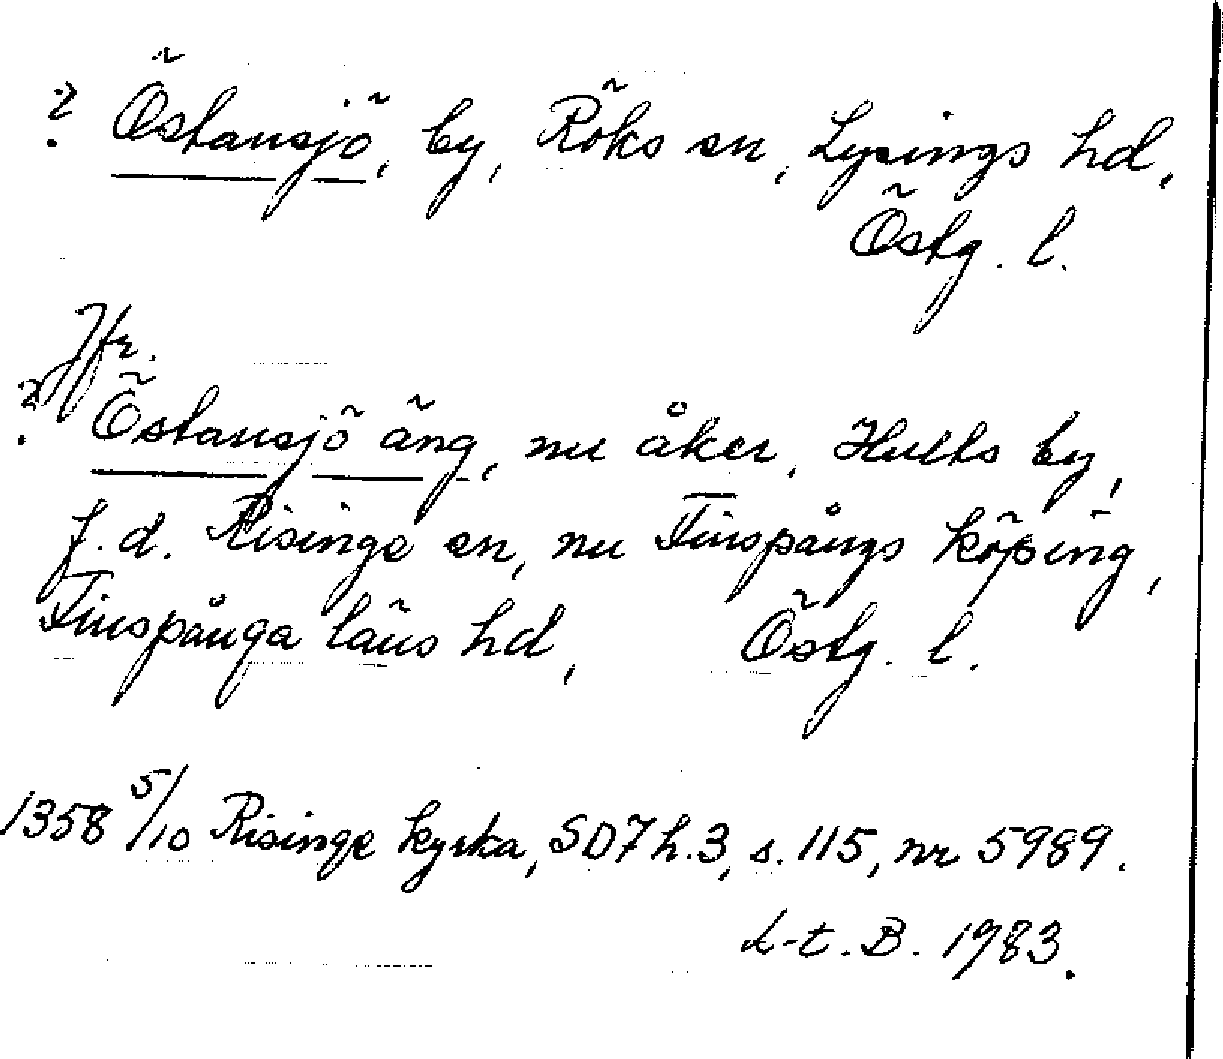 ? Östansjö, by, Röks sn, Lysings hd,
Östg. l.
Jfr.
? Östansjö äng, nu åker, Hults by,
f.d. Risinge sn, nu Finspångs köping,
Finspånga läns hd, Östg. l.
1358 5/10 Risinge kyrka, SD7 h.3, s. 115, nr 5989.
L-t. B. 1983.